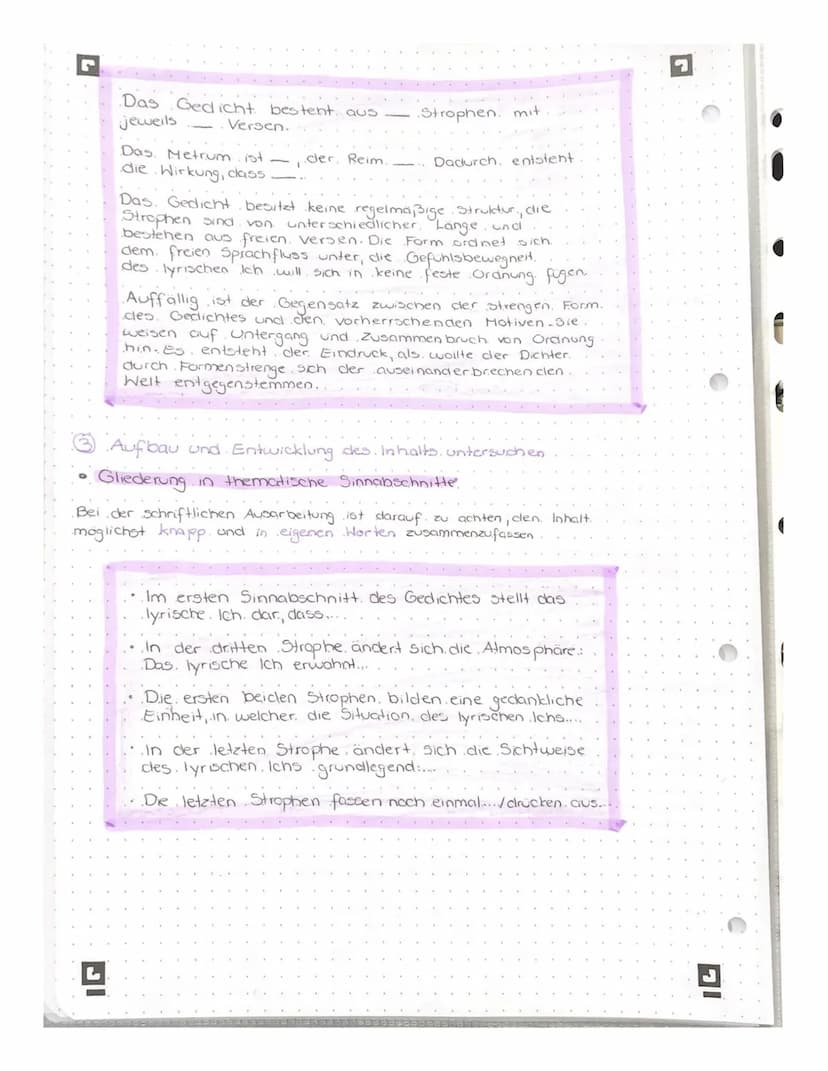 Das Gedicht besteht aus __ Strophen mit
jeweils __ Versen.
Das Metrum ist __, der Reim __. Dadurch entsteht
die Wirkung, dass __.
Das Gedicht besitzt keine regelmäßige Struktur, die
Strophen sind von unterschiedlicher Länge und
bestehen aus freien Versen. Die Form ordnet sich
dem freien Sprachfluss unter, die Gefühlsbewegheit
des lyrischen Ich will sich in keine feste Ordnung fügen
Auffällig ist der Gegensatz zwischen der strengen Form
des Gedichtes und den vorherrschenden Motiven. Sie
weisen auf Untergang und Zusammenbruch von Ordnung
hin. Es entsteht der Eindruck, als wollte der Dichter
durch Formenstrenge sich der auseinanderbrechenden
Welt entgegenstemmen.
③ Aufbau und Entwicklung des Inhalts untersuchen
• Gliederung in thematische Sinnabschnitte
Bei der schriftlichen Ausarbeitung ist darauf zu achten, den Inhalt
möglichst knapp und in eigenen Worten zusammenzufassen
• Im ersten Sinnabschnitt des Gedichtes stellt das
lyrische Ich dar, dass...
• In der dritten Strophe ändert sich die Atmosphäre:
Das lyrische Ich erwähnt...
• Die ersten beiden Strophen bilden eine gedankliche
Einheit, in welcher die Situation des lyrischen Ichs...
• In der letzten Strophe ändert sich die Sichtweise
des lyrischen Ichs grundlegend:...
• Die letzten Strophen fassen noch einmal.../drücken aus...